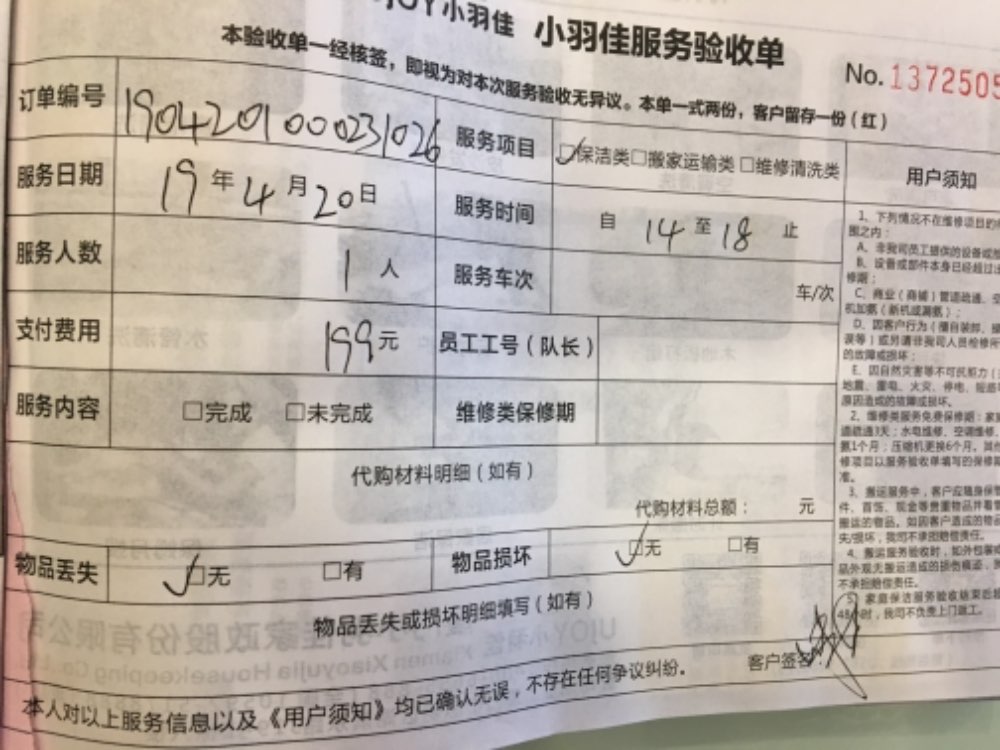 小羽佳 小羽佳服务验收单
本验收单一经核签，即视为对本次服务验收无异议。本单一式两份，客户留存一份（红）
No. 1372505
订单编号 190420100023 1026 服务项目 ☑保洁类□搬家运输类 □维修清洗类 用户须知
服务日期 19 年 4 月 20 日 服务时间 自 14 至 18 止
服务人数 1 人 服务车次 车/次
支付费用 199 元 员工工号（队长）
服务内容 □完成 □未完成 维修类保修期
代购材料明细（如有）
代购材料总额： 元
物品丢失 ☑无 □有 物品损坏 ☑无 □有
物品丢失或损坏明细填写（如有）
客户签名：
本人对以上服务信息以及《用户须知》均已确认无误，不存在任何争议纠纷。
1、下列情况不在维修项目的
围之内：
A、非我司员工提供的设备或
B、设备或部件本身已经超过
修期；
C、商业（商铺）管道疏通、
机加氨（新机或漏氨）；
D、因客户行为（擅自装卸、
误等）或另请非我司人员检修所
的故障或损坏；
E、因自然灾害等不可抗力（
地震、雷电、火灾、停电、短路
原因造成的故障或损坏。
2、维修类服务免费保修期：
道疏通3天；水电维修、空调维修、
氨1个月；压缩机更换6个月。其
修项目以服务验收单填写的保修期
准。
3、搬运服务中，客户应随身保
件、首饰、现金等贵重物品并
搬运的物品，如因客户造成的物
失/损坏，我司不承担赔偿责任。
4、搬运服务验收时，如外包装
品外观无搬运造成的损伤痕迹，
不承担赔偿责任。
5、家庭保洁服务验收结束后超
48小时，我司不负责上门返工。